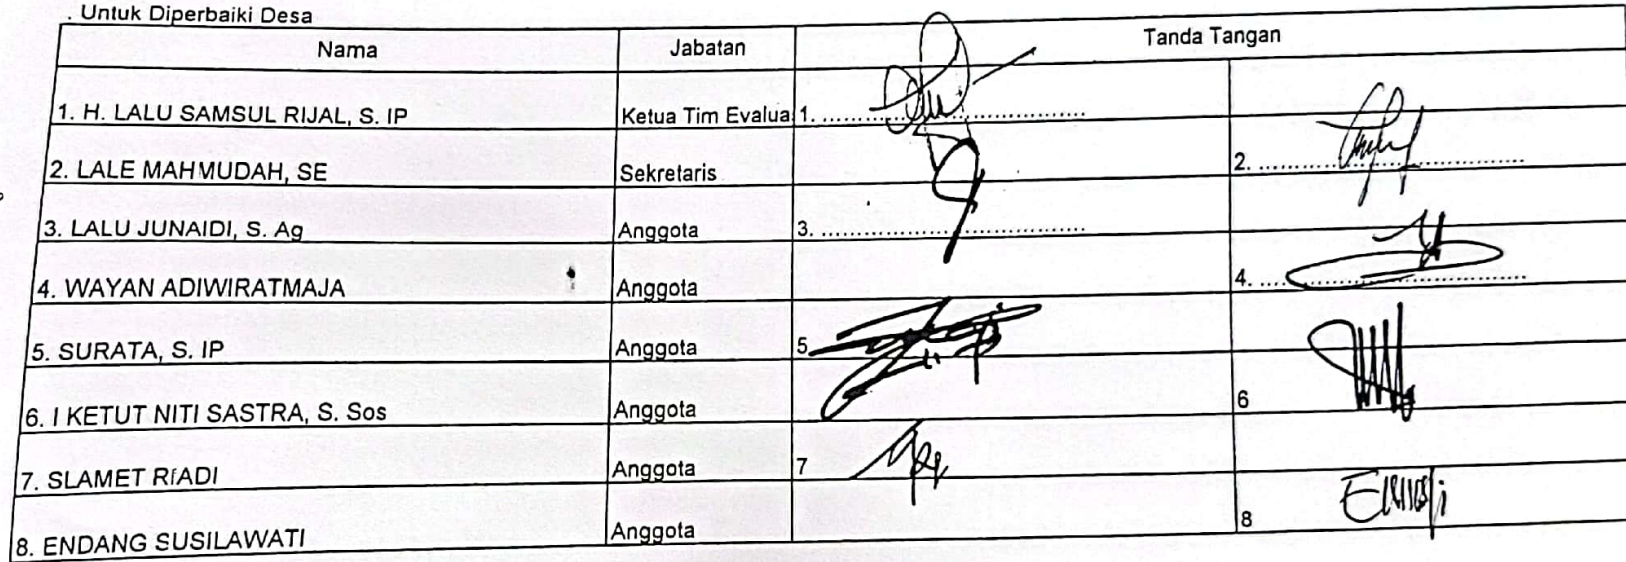 . Untuk Diperbaiki Desa
Nama Jabatan Tanda Tangan
1. H. LALU SAMSUL RIJAL, S. IP Ketua Tim Evalua 1. ........................
2. LALE MAHMUDAH, SE Sekretaris 2. ........................
3. LALU JUNAIDI, S. Ag Anggota 3. ........................
4. WAYAN ADIWIRATMAJA Anggota 4. ........................
5. SURATA, S. IP Anggota 5
6. I KETUT NITI SASTRA, S. Sos Anggota 6
7. SLAMET RIADI Anggota 7
8. ENDANG SUSILAWATI Anggota 8